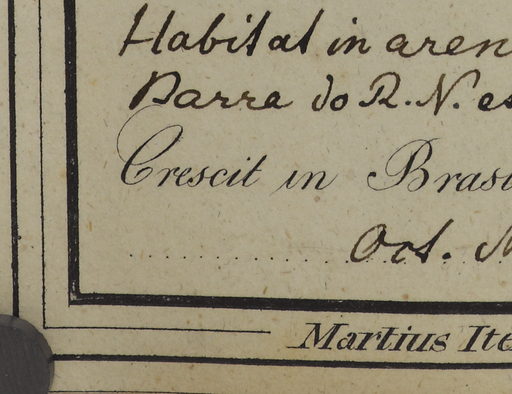 Habitat in aren
Barra do R. N. es
Crescit in Brasi
Oct. M
Martius Ite